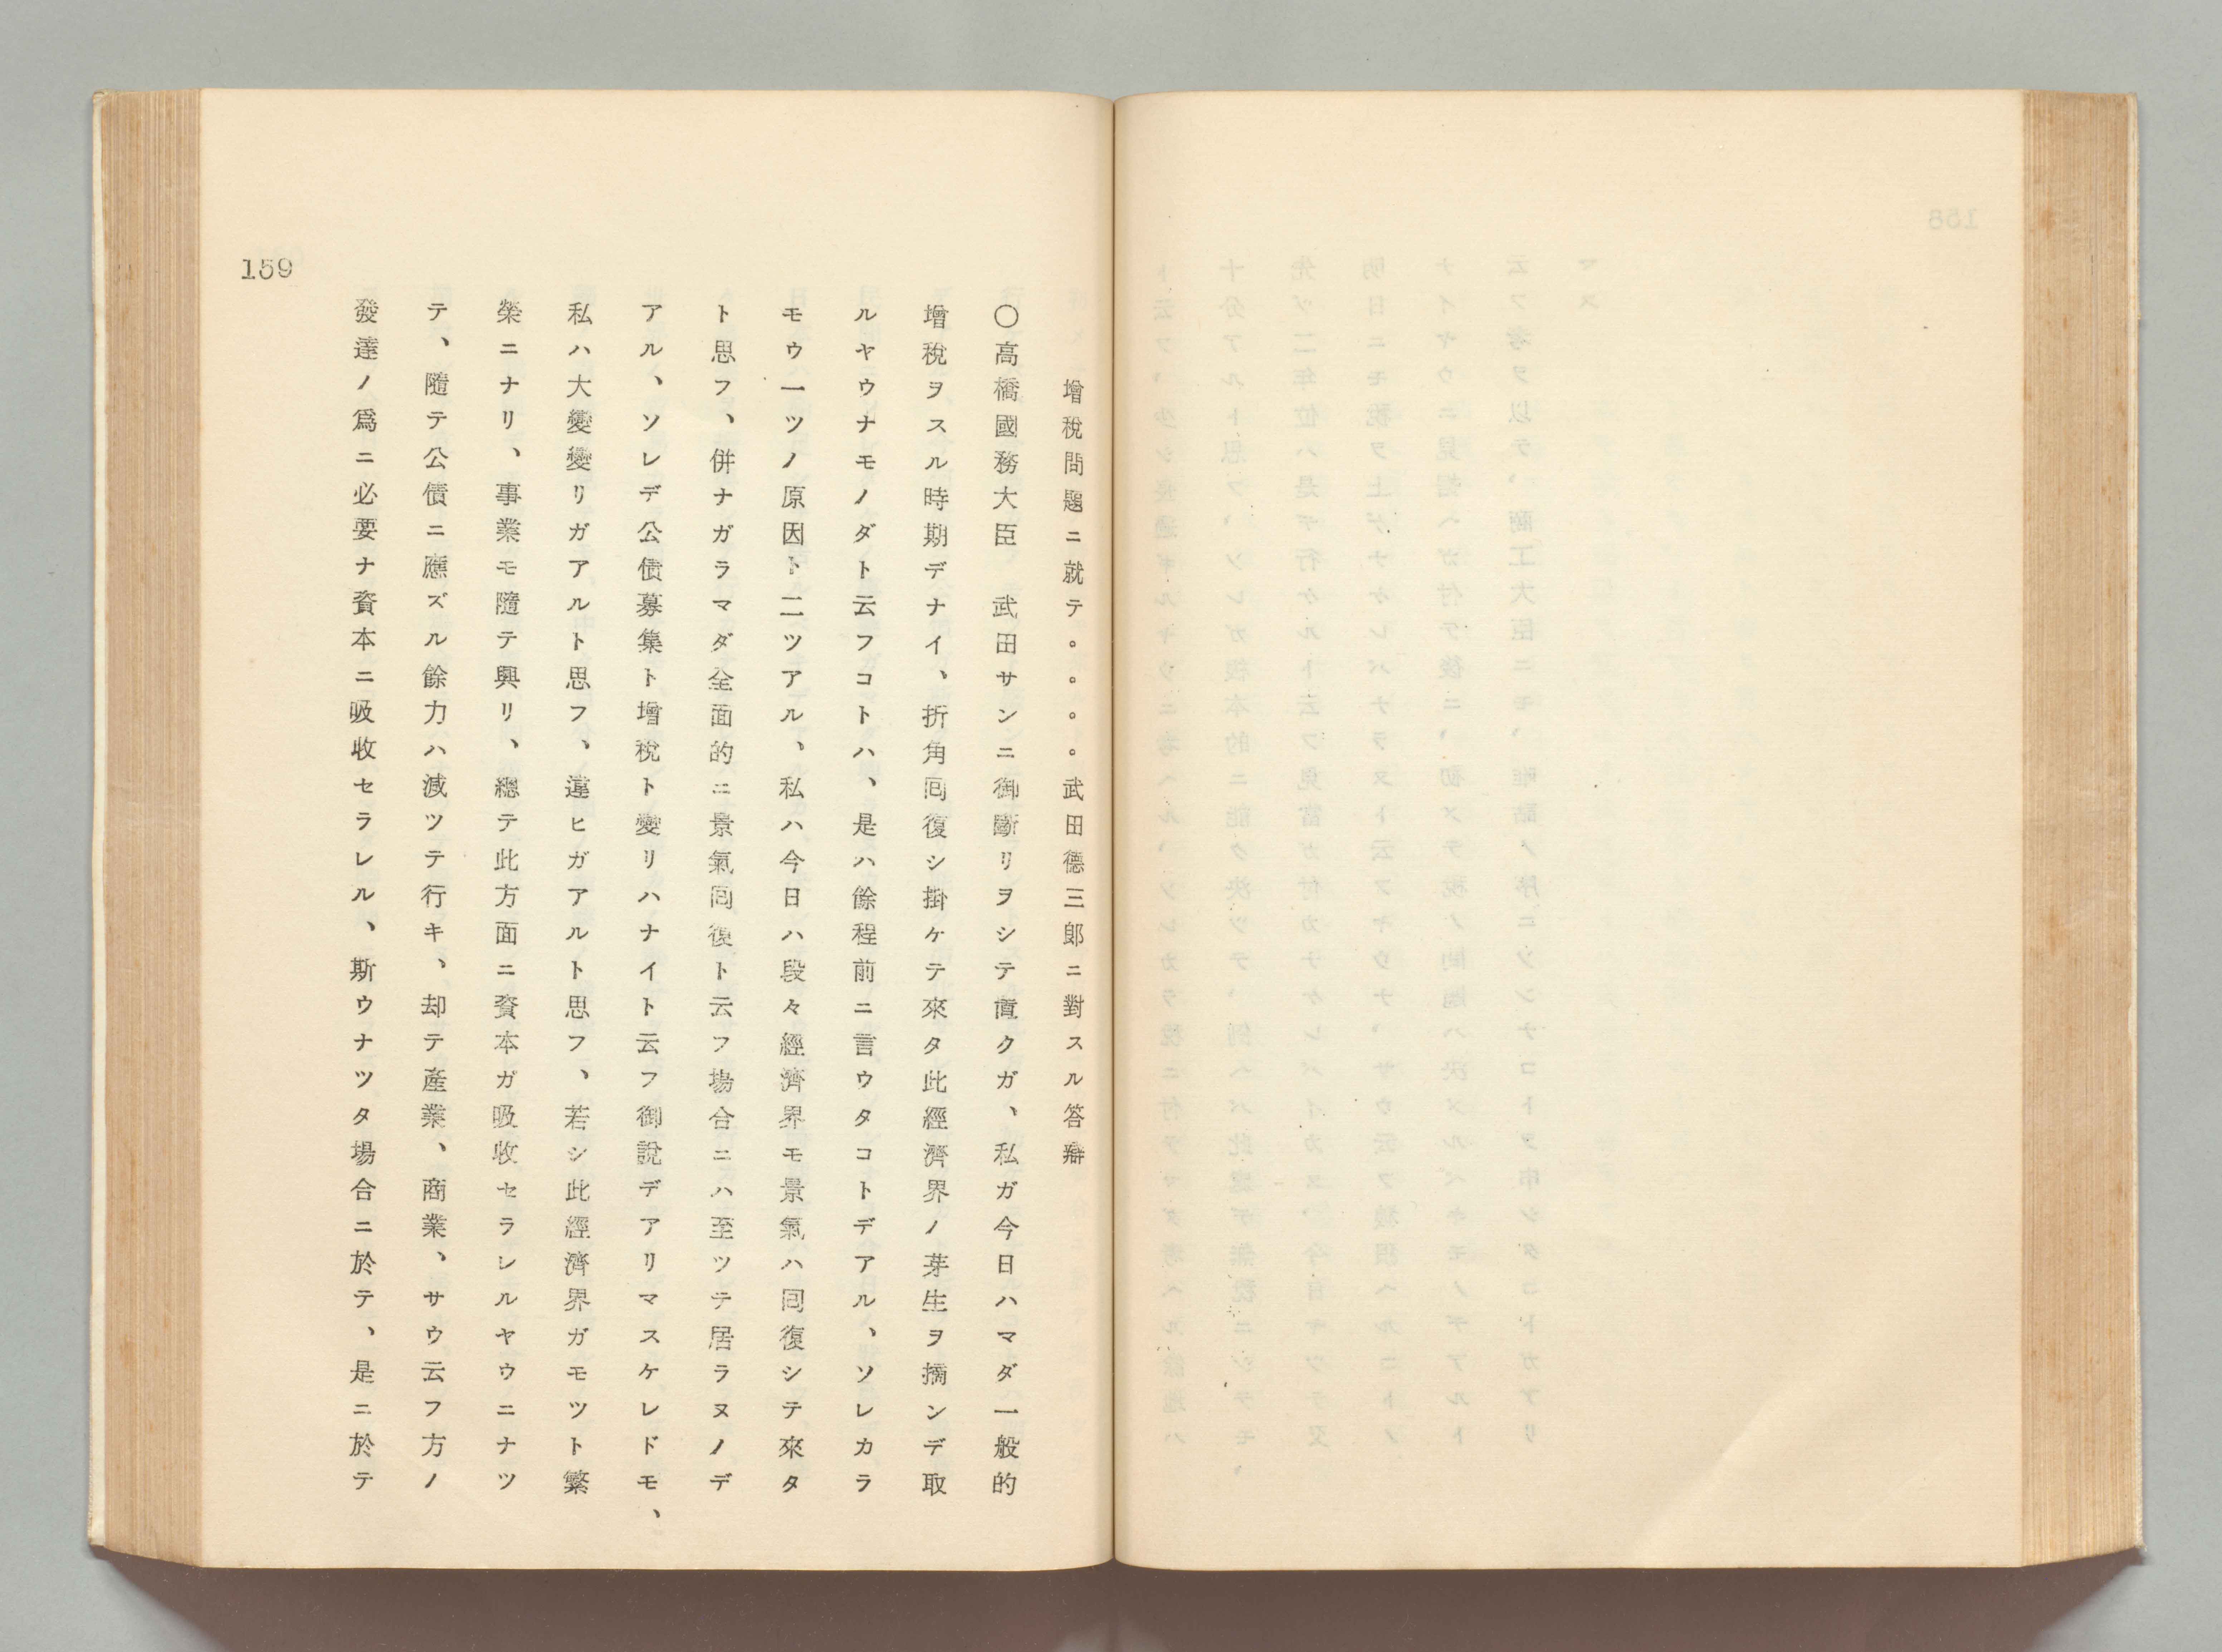 159
增稅問題ニ就テ。。。。武田德三郎ニ對スル答辯
〇高橋國務大臣　武田サンニ御斷リヲシテ置クガ、私ガ今日ハマダ一般的
增稅ヲスル時期デナイ、折角囘復シ掛ケテ來タ此經濟界ノ芽生ヲ摘ンデ取
ルヤウナモノダト云フコトハ、是ハ餘程前ニ言ウタコトデアル、ソレカラ
モウ一ツノ原因ト二ツアル、私ハ今日ハ段々經濟界モ景氣ハ囘復シテ來タ
ト思フ、併ナガラマダ全面的ニ景氣囘復ト云フ場合ニハ至ツテ居ラヌノデ
アル、ソレデ公債募集ト增稅ト變リハナイト云フ御說デアリマスケレドモ、
私ハ大變變リガアルト思フ、違ヒガアルト思フ、若シ此經濟界ガモツト繁
榮ニナリ、事業モ隨テ興リ、總テ此方面ニ資本ガ吸收セラレルヤウニナツ
テ、隨テ公債ニ應ズル餘力ハ減ツテ行キ、却テ產業、商業、サウ云フ方ノ
發達ノ爲ニ必要ナ資本ニ吸收セラレル、斯ウナツタ場合ニ於テ、是ニ於テ